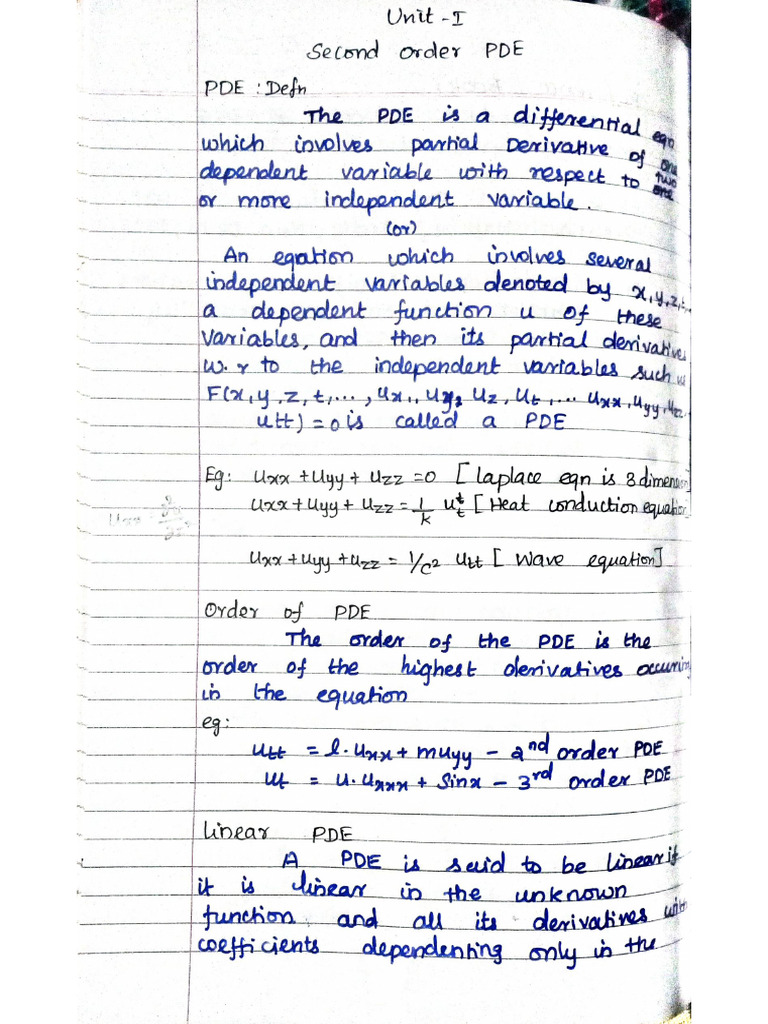 Unit - I
Second order PDE
PDE : Defn
The PDE is a differential eqn
which involves partial Derivative of one
dependent variable with respect to two
one
or more independent variable.
(or)
An eqation which involves several
independent variables denoted by x, y, z, t, ..
a dependent function u of these
variables, and then its partial derivatives
w.r to the independent variables such as
F(x, y, z, t, ..., ux, uy, uz, ut, ... uxx, uyy, uzz
utt) = 0 is called a PDE
Eg: uxx + uyy + uzz = 0 [laplace eqn is 3 dimension]
uxx + uyy + uzz = 1/k ut [Heat conduction equation]
uxx + uyy + uzz = 1/c² utt [Wave equation]
Order of PDE
The order of the PDE is the
order of the highest derivatives occuring
in the equation
eg:
utt = l.uxx + muyy - 2nd order PDE
ut = u.uxxx + Sinx - 3rd order PDE
Linear PDE
A PDE is said to be linear if
it is linear in the unknown
function and all its derivatives with
coefficients dependenting only in the